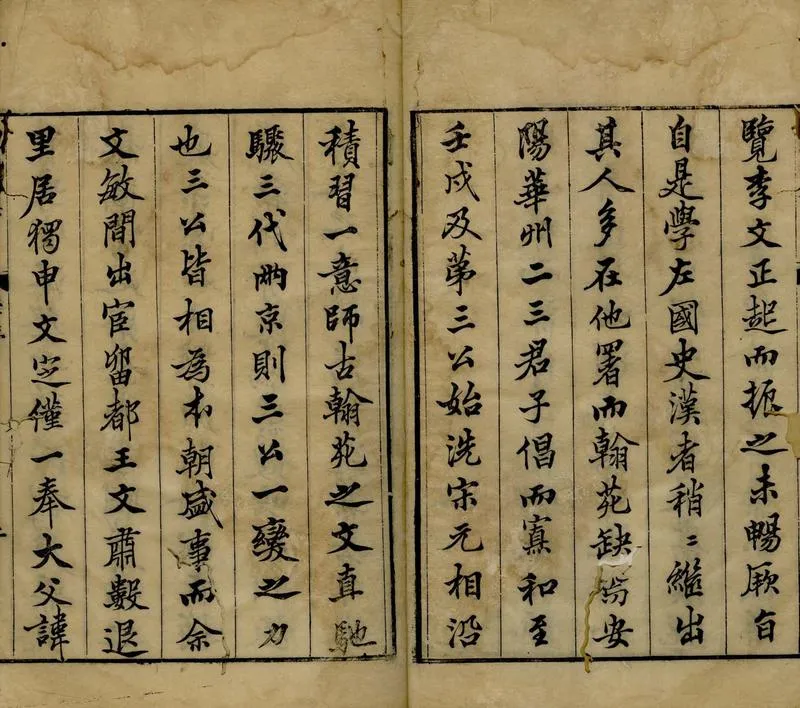 覽李文正起而振之未暢厥旨
自是學左國史漢者稍〻繼出
其人多在他署而翰苑缺焉安
陽華州二三君子倡而寡和至
壬戌及第三公始洗宋元相沿
積習一意師古翰苑之文直馳
驟三代兩京則三公一變之力
也三公皆相為本朝盛事而余
文敏間出宦留都王文肅數退
里居獨申文定僅一奉大父諱